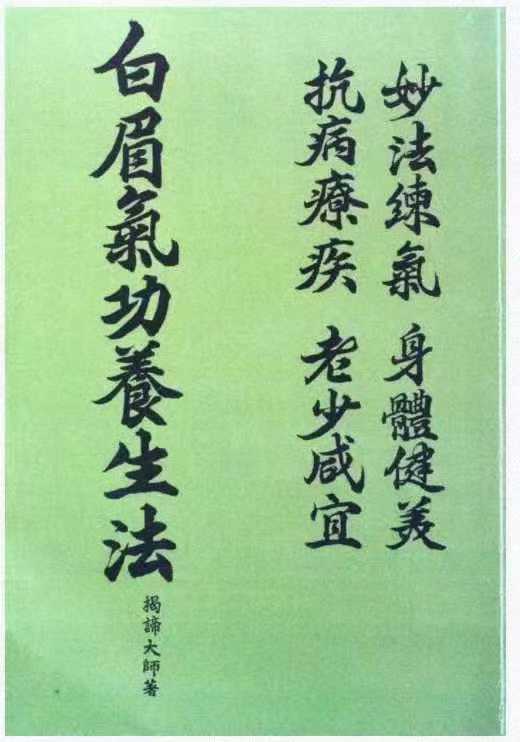 妙法練氣 身體健美
抗病療疾 老少咸宜
白眉氣功養生法
揭諦大師著